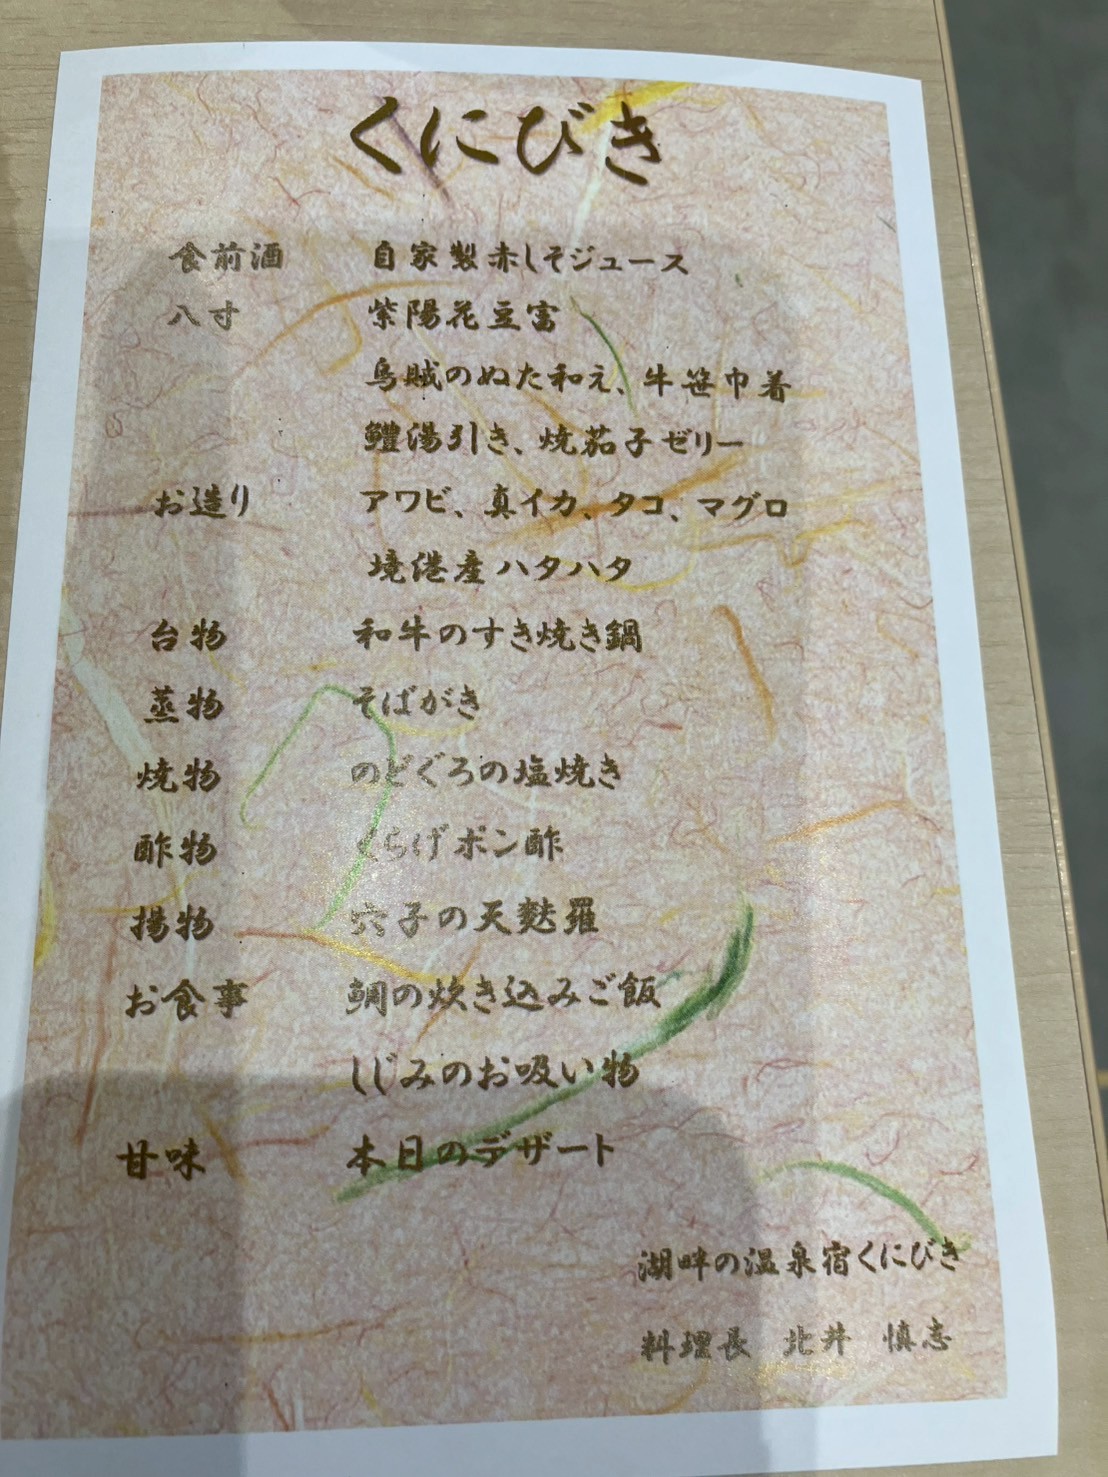 くにびき
食前酒 自家製赤しそジュース
八寸 紫陽花豆富
烏賊のぬた和え、牛笹巾着
鱧湯引き、焼茄子ゼリー
お造り アワビ、真イカ、タコ、マグロ
境港産ハタハタ
台物 和牛のすき焼き鍋
蒸物 そばがき
焼物 のどぐろの塩焼き
酢物 くらげポン酢
揚物 穴子の天麩羅
お食事 鯛の炊き込みご飯
しじみのお吸い物
甘味 本日のデザート
湖畔の温泉宿くにびき
料理長 北井 慎志